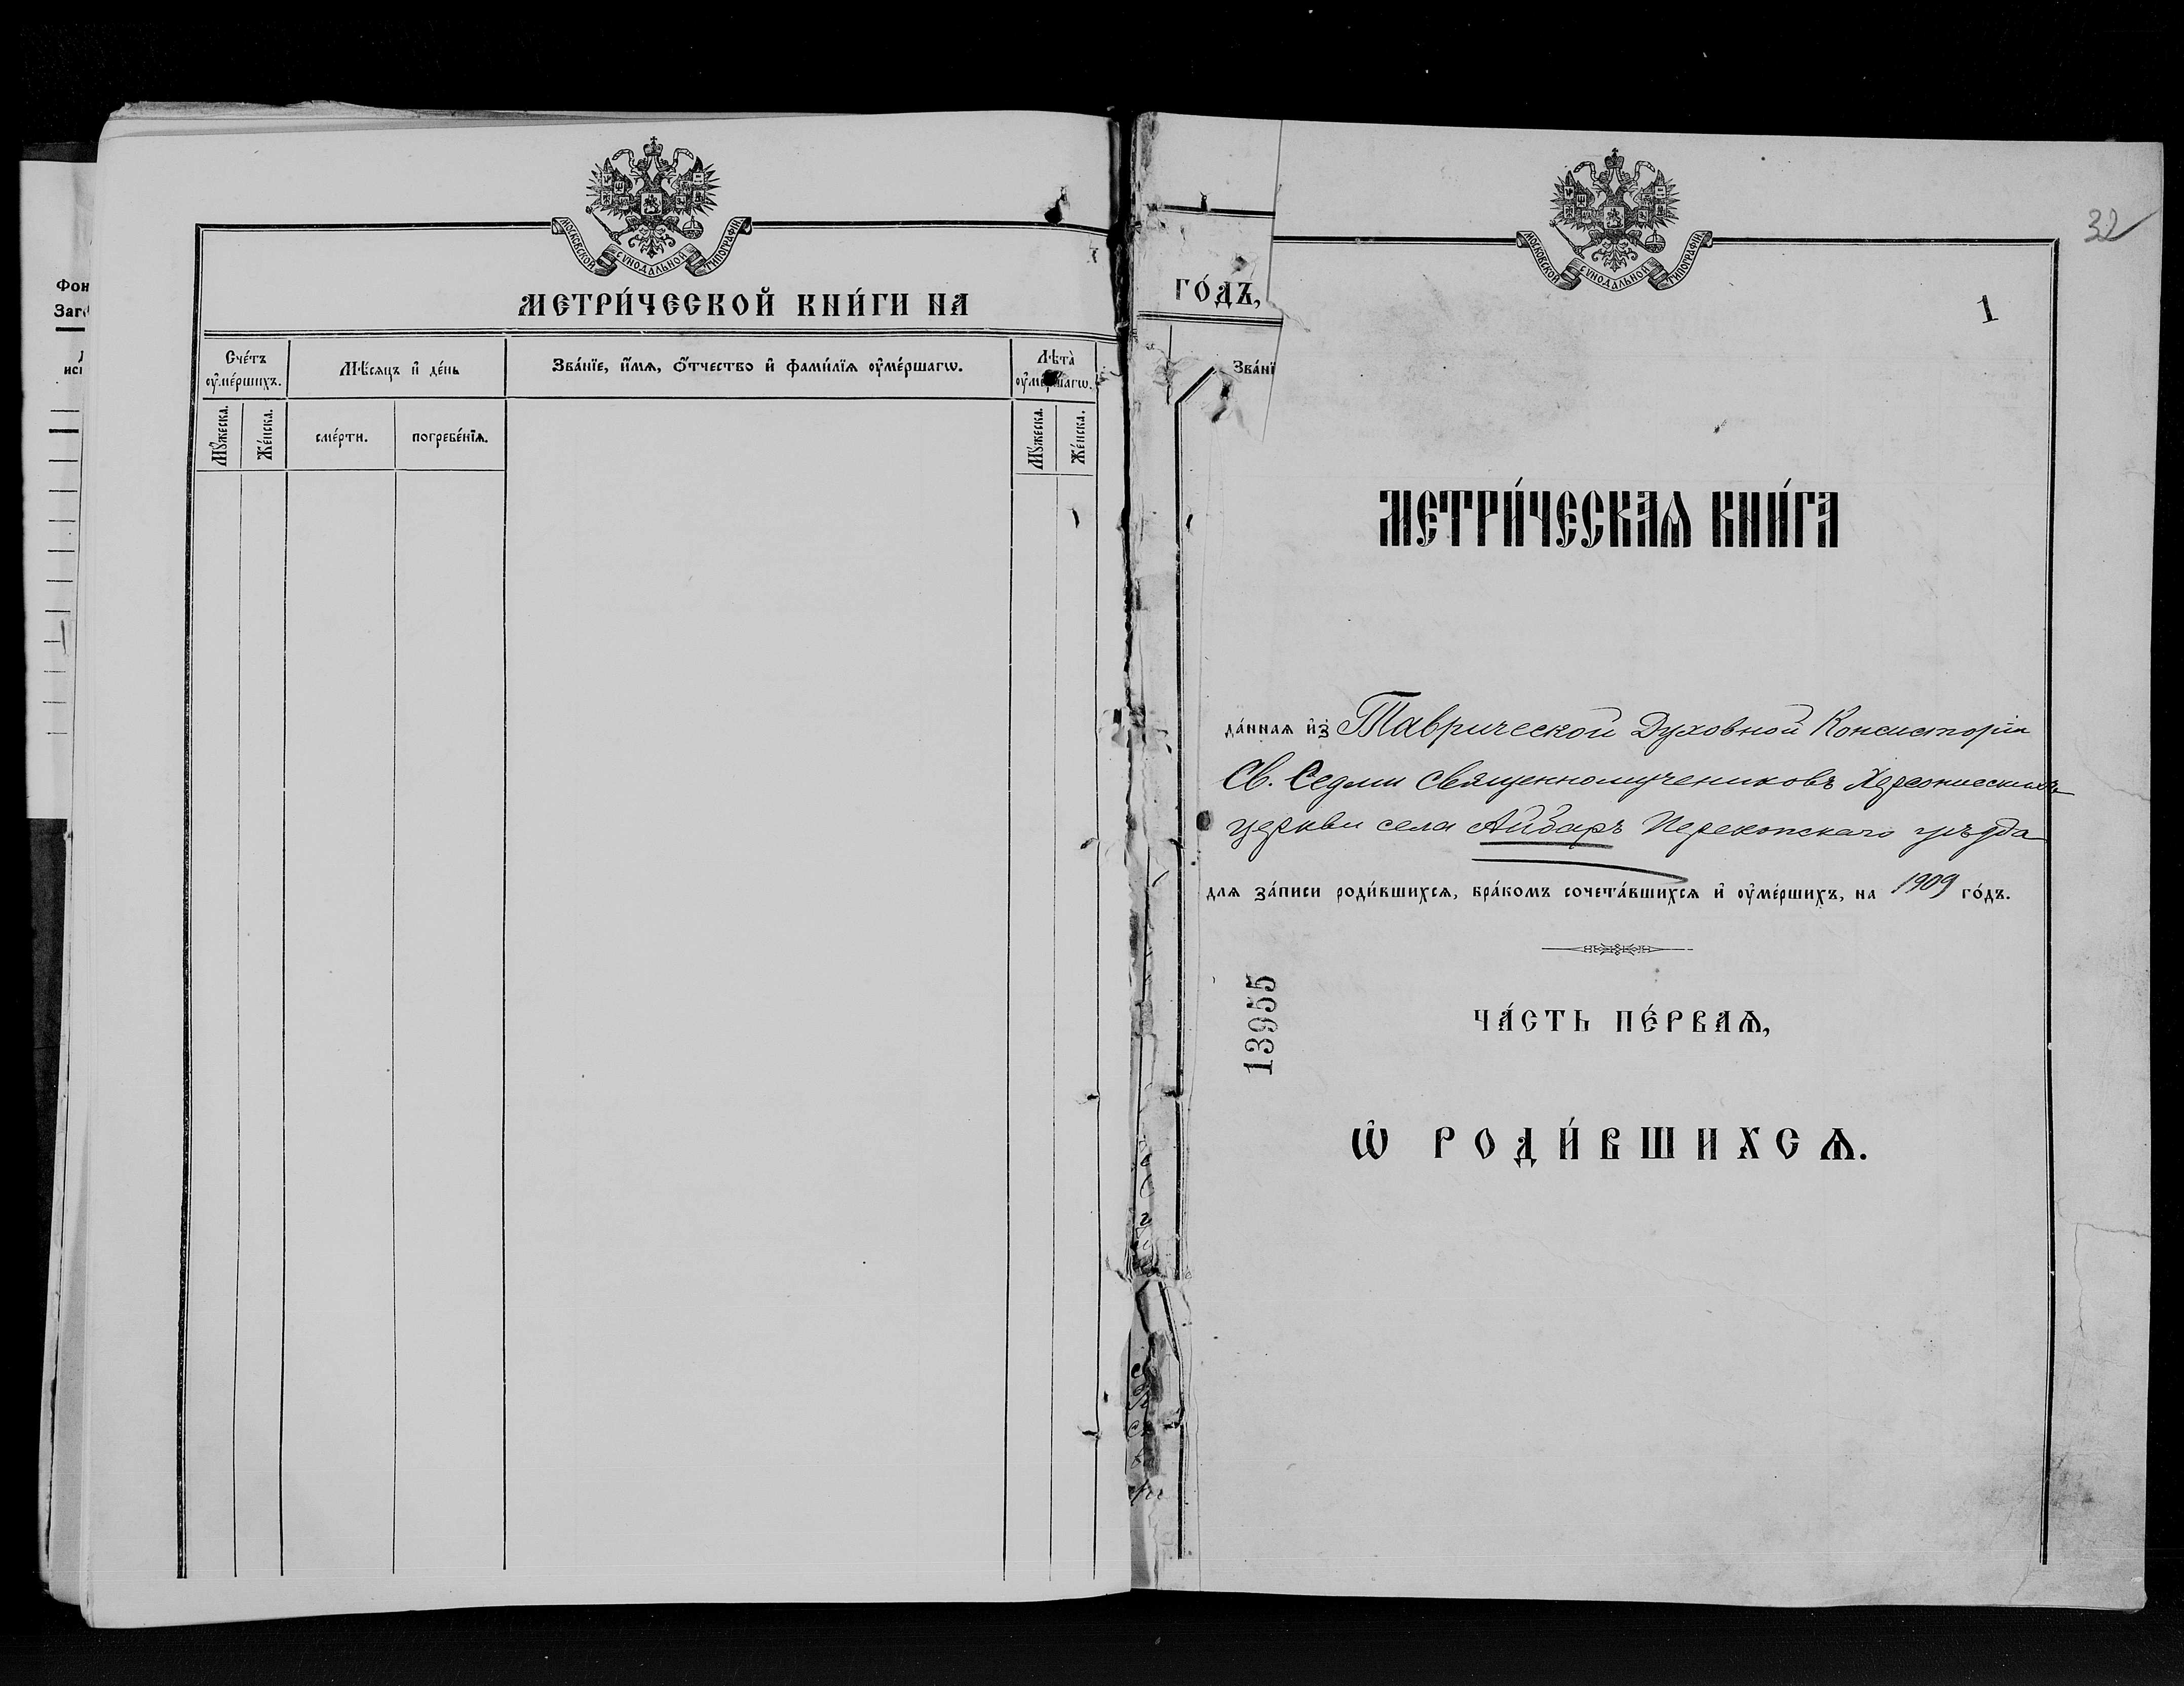 Фон
Заг
МОСКОВСКОЙ СѴНОДАЛЬНОЙ ТИПОГРАФІИ
МЕТРИ́ЧЕСКОЙ КНИ́ГИ НА
Сче́тъ ᲂу҆ме́ршихъ.
Мѣ́сяцъ и҆ де́нь
Зва́нїе, и҆́мѧ, ѻ҆́тчество и҆ фами́лїѧ ᲂу҆ме́ршагѡ.
Лѣта̀ ᲂу҆ме́ршагѡ.
Мꙋ́жеска.
Же́нска.
сме́рти.
погребе́нїѧ.
Мꙋ́жеска.
Же́нска.
ГО́ДЪ,
Зва́нї
МОСКОВСКОЙ СѴНОДАЛЬНОЙ ТИПОГРАФІИ
32
1
МЕТРИ́ЧЕСКАѦ КНИ́ГА
да́ннаѧ и҆з̾ Таврической Духовной Консисторіи
Св. Седми Священномучениковъ Херсонисскихъ
церкви села Айбаръ Перекопскаго уѣзда
длѧ за́писи роди́вшихсѧ, бра́комъ сочета́вшихсѧ и҆ ᲂу҆ме́ршихъ, на 1909 го́дъ.
13955
ЧА́СТЬ ПЕ́РВАѦ,
Ѡ҆ РОДИ́ВШИХСѦ.